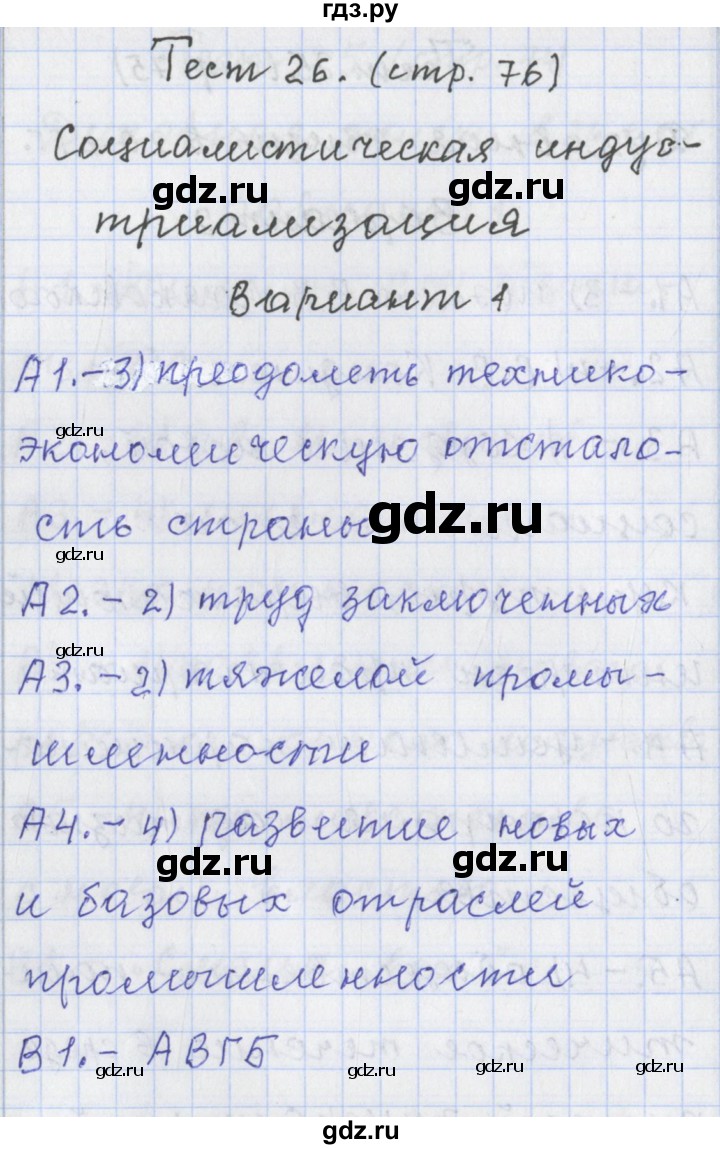 гдз.ру
Тест 26. (стр. 76)
Социалистическая индус-
gdz.ru gdz.ru
триализация
Вариант 1
А1.-3) преодолеть технико-
gdz.ru
экономическую отстало-
сть страны gdz.ru
gdz.ru
А2.-2) труд заключенных
gdz.ru
А3.-2) тяжелой промы-
шленности
А4.-4) развитие новых
gdz.ru gdz.ru
и базовых отраслей
промышленности
В1.- АВГБ
gdz.ru gdz.ru gdz.ru gdz.ru
gdz.ru